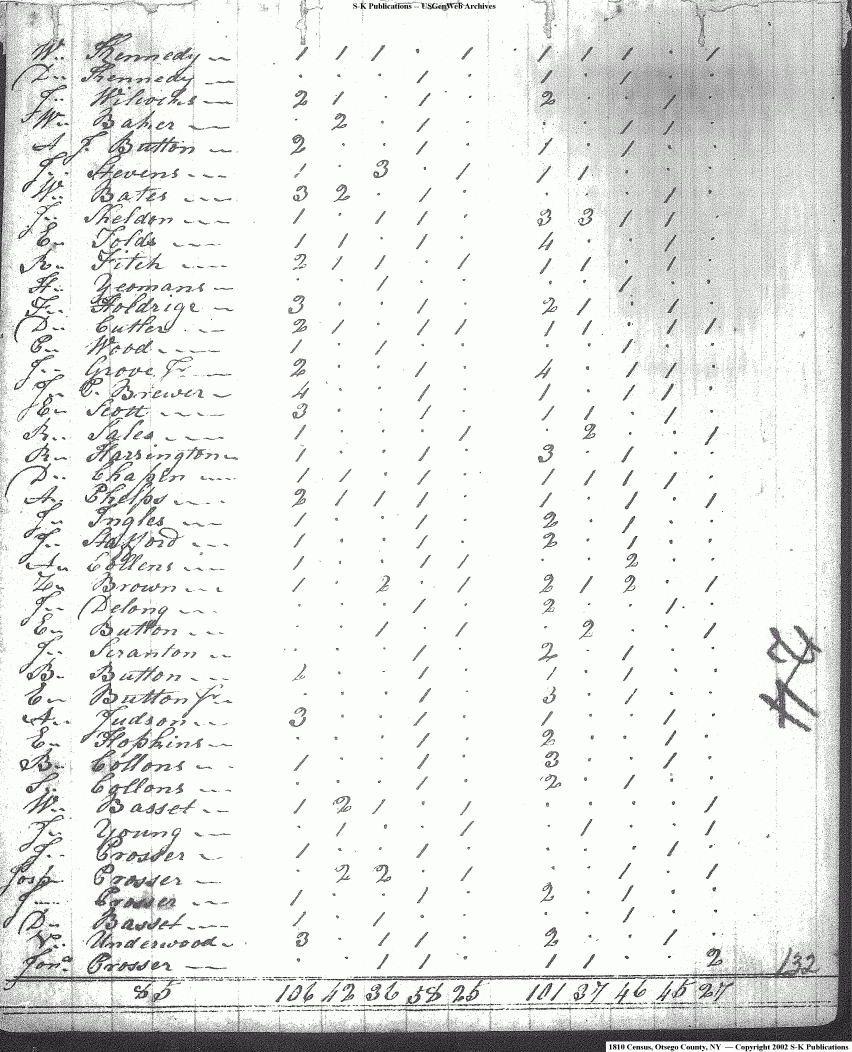 S-K Publications -- USGenWeb Archives
W. Kennedy 1 1 1 . 1 . 1 1 1 . 1
D. Kennedy . . . 1 . 1 . 1 . .
J. Wilcocks 2 1 . 1 . 2 . . 1 .
W. Baker . 2 . 1 . . . 1 1 .
A J. Button 2 . . 1 . 1 . 1 . .
J. Stevens 1 . 3 . 1 1 1
W. Bates 3 2 . 1 . . . . 1 .
J. Sheldon 1 . 1 1 . 3 3 1 1 .
E. Tolds 1 1 . 1 . 4 . . 1 .
R. Fitch 2 1 1 . 1 1 1 . 1 .
H. Yeomans . . 1 . . . . 1 . .
F. Holdrige 3 . . 1 . 2 1 . 1 .
D. Cutler 2 1 . 1 1 1 1 . 1 1
E. Wood 1 . 1 . . . . 1 . .
J. Grove Jr. 2 . . 1 . 4 . 1 1 .
J. P. Brewer 4 . . 1 . 1 . 1 1 .
E. Scott 3 . . 1 . 1 1 . 1 .
R. Sales 1 . . . 1 . 2 . . 1
R. Harrington 1 . . 1 . 3 . 1 . .
D. Chapen 1 1 . 1 . 1 1 1 1 .
A. Phelps 2 1 1 1 . 1 . 1 . 1
J. Ingles 1 . . 1 . 2 . 1 . .
J. Stafford 1 . . 1 . 2 . 1 . .
A. Collens 1 . . 1 1 . . 2 . .
Z. Brown 1 . 2 . 1 2 1 2 . 1
J. Delong . . . 1 . 2 . . 1 .
E. Button . . 1 . 1 . 2 . . 1
J. Scranton . . . 1 . 2 . 1 . .
B. Button 2 . . 1 . 1 . 1 . .
E. Button Jr. . . . 1 . 3 . 1 . .
A. Judson 3 . . 1 . 1 . . 1 .
E. Hopkins . . . 1 . 2 . 1 . .
B. Collons 1 . . 1 . 3 . . 1 .
S. Collons . . . 1 . 2 . 1 . .
W. Basset 1 2 1 . 1 . . . . 1
J. Young . 1 . . 1 . 1 . . 1
J. Crosser 1 . . 1 . . . . 1 .
Josp. Crosser . 2 2 . 1 . . 1 . 1
J. Crosser 1 . . 1 . 2 . . 1 .
D. Basset 1 . 1 . . . . 1 . .
V. Underwood 3 . 1 1 . 2 . . 1 .
Jona. Crosser . . 1 1 . 1 1 . . 2
132
85 106 42 36 58 25 101 37 46 45 27
1810 Census, Otsego County, NY — Copyright 2002 S-K Publications